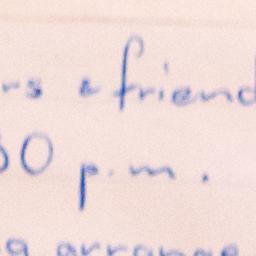 rs & friend
30 p.m.
g arrange